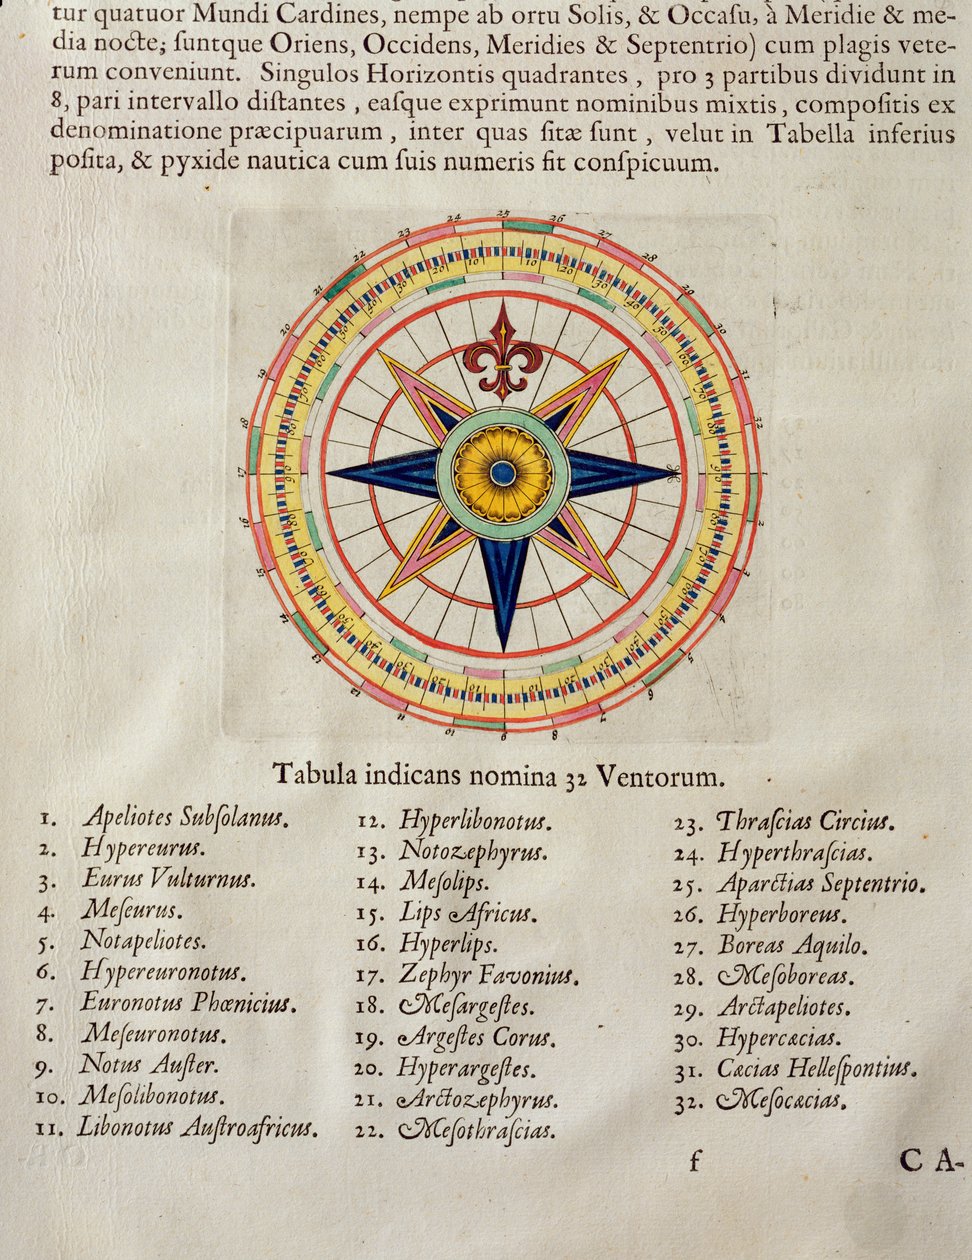 tur quatuor Mundi Cardines, nempe ab ortu Solis, & Occaſu, à Meridie & me-
dia nocte; ſuntque Oriens, Occidens, Meridies & Septentrio) cum plagis vete-
rum conveniunt. Singulos Horizontis quadrantes, pro 3 partibus dividunt in
8, pari intervallo diſtantes, eaſque exprimunt nominibus mixtis, compoſitis ex
denominatione præcipuarum, inter quas ſitæ ſunt, velut in Tabella inferius
poſita, & pyxide nautica cum ſuis numeris ſit conſpicuum.
Tabula indicans nomina 32 Ventorum.
1. Apeliotes Subſolanus.
2. Hypereurus.
3. Eurus Vulturnus.
4. Meſeurus.
5. Notapeliotes.
6. Hypereuronotus.
7. Euronotus Phœnicius.
8. Meſeuronotus.
9. Notus Auſter.
10. Meſolibonotus.
11. Libonotus Auſtroafricus.
12. Hyperlibonotus.
13. Notozephyrus.
14. Meſolips.
15. Lips Africus.
16. Hyperlips.
17. Zephyr Favonius.
18. Meſargeſtes.
19. Argeſtes Corus.
20. Hyperargeſtes.
21. Arctozephyrus.
22. Meſothraſcias.
23. Thraſcias Circius.
24. Hyperthraſcias.
25. Aparctias Septentrio.
26. Hyperboreus.
27. Boreas Aquilo.
28. Meſoboreas.
29. Arctapeliotes.
30. Hypercæcias.
31. Cæcias Helleſpontius.
32. Meſocæcias.
f CA-